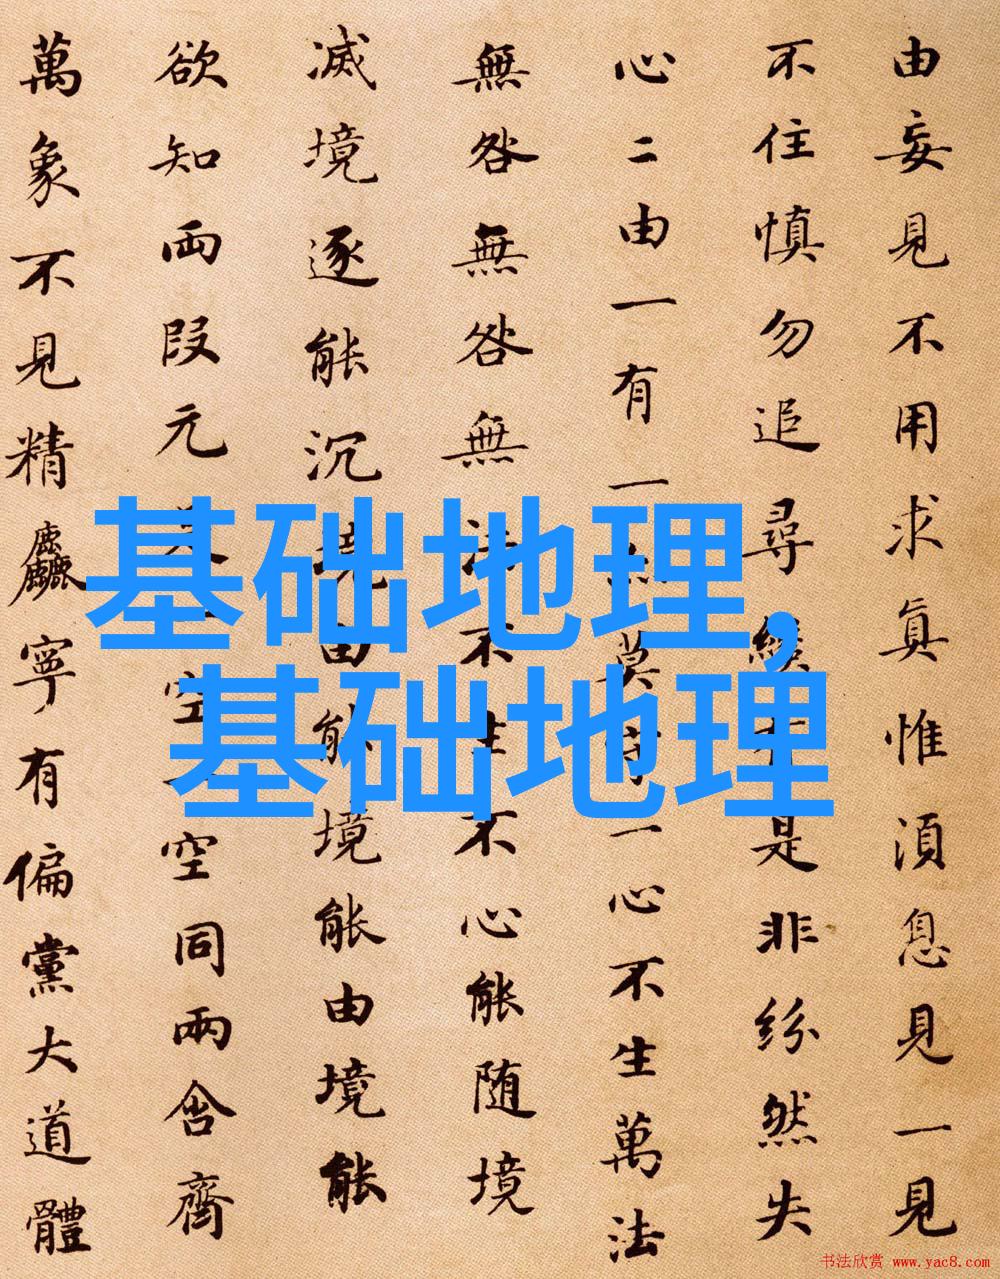 由妄見不用求真惟湏息見一見
不住慎勿追尋纔是非紛然失
心二由一有一莫守一心不生萬法
無咎無咎無法不生不心能随境
滅境逐能沉境由能境能由境能
欲知両段元空一空同兩含齊
萬象不見精麤寧有偏黨大道體
基础地理，
基础地理
书法欣赏 www.yac8.com